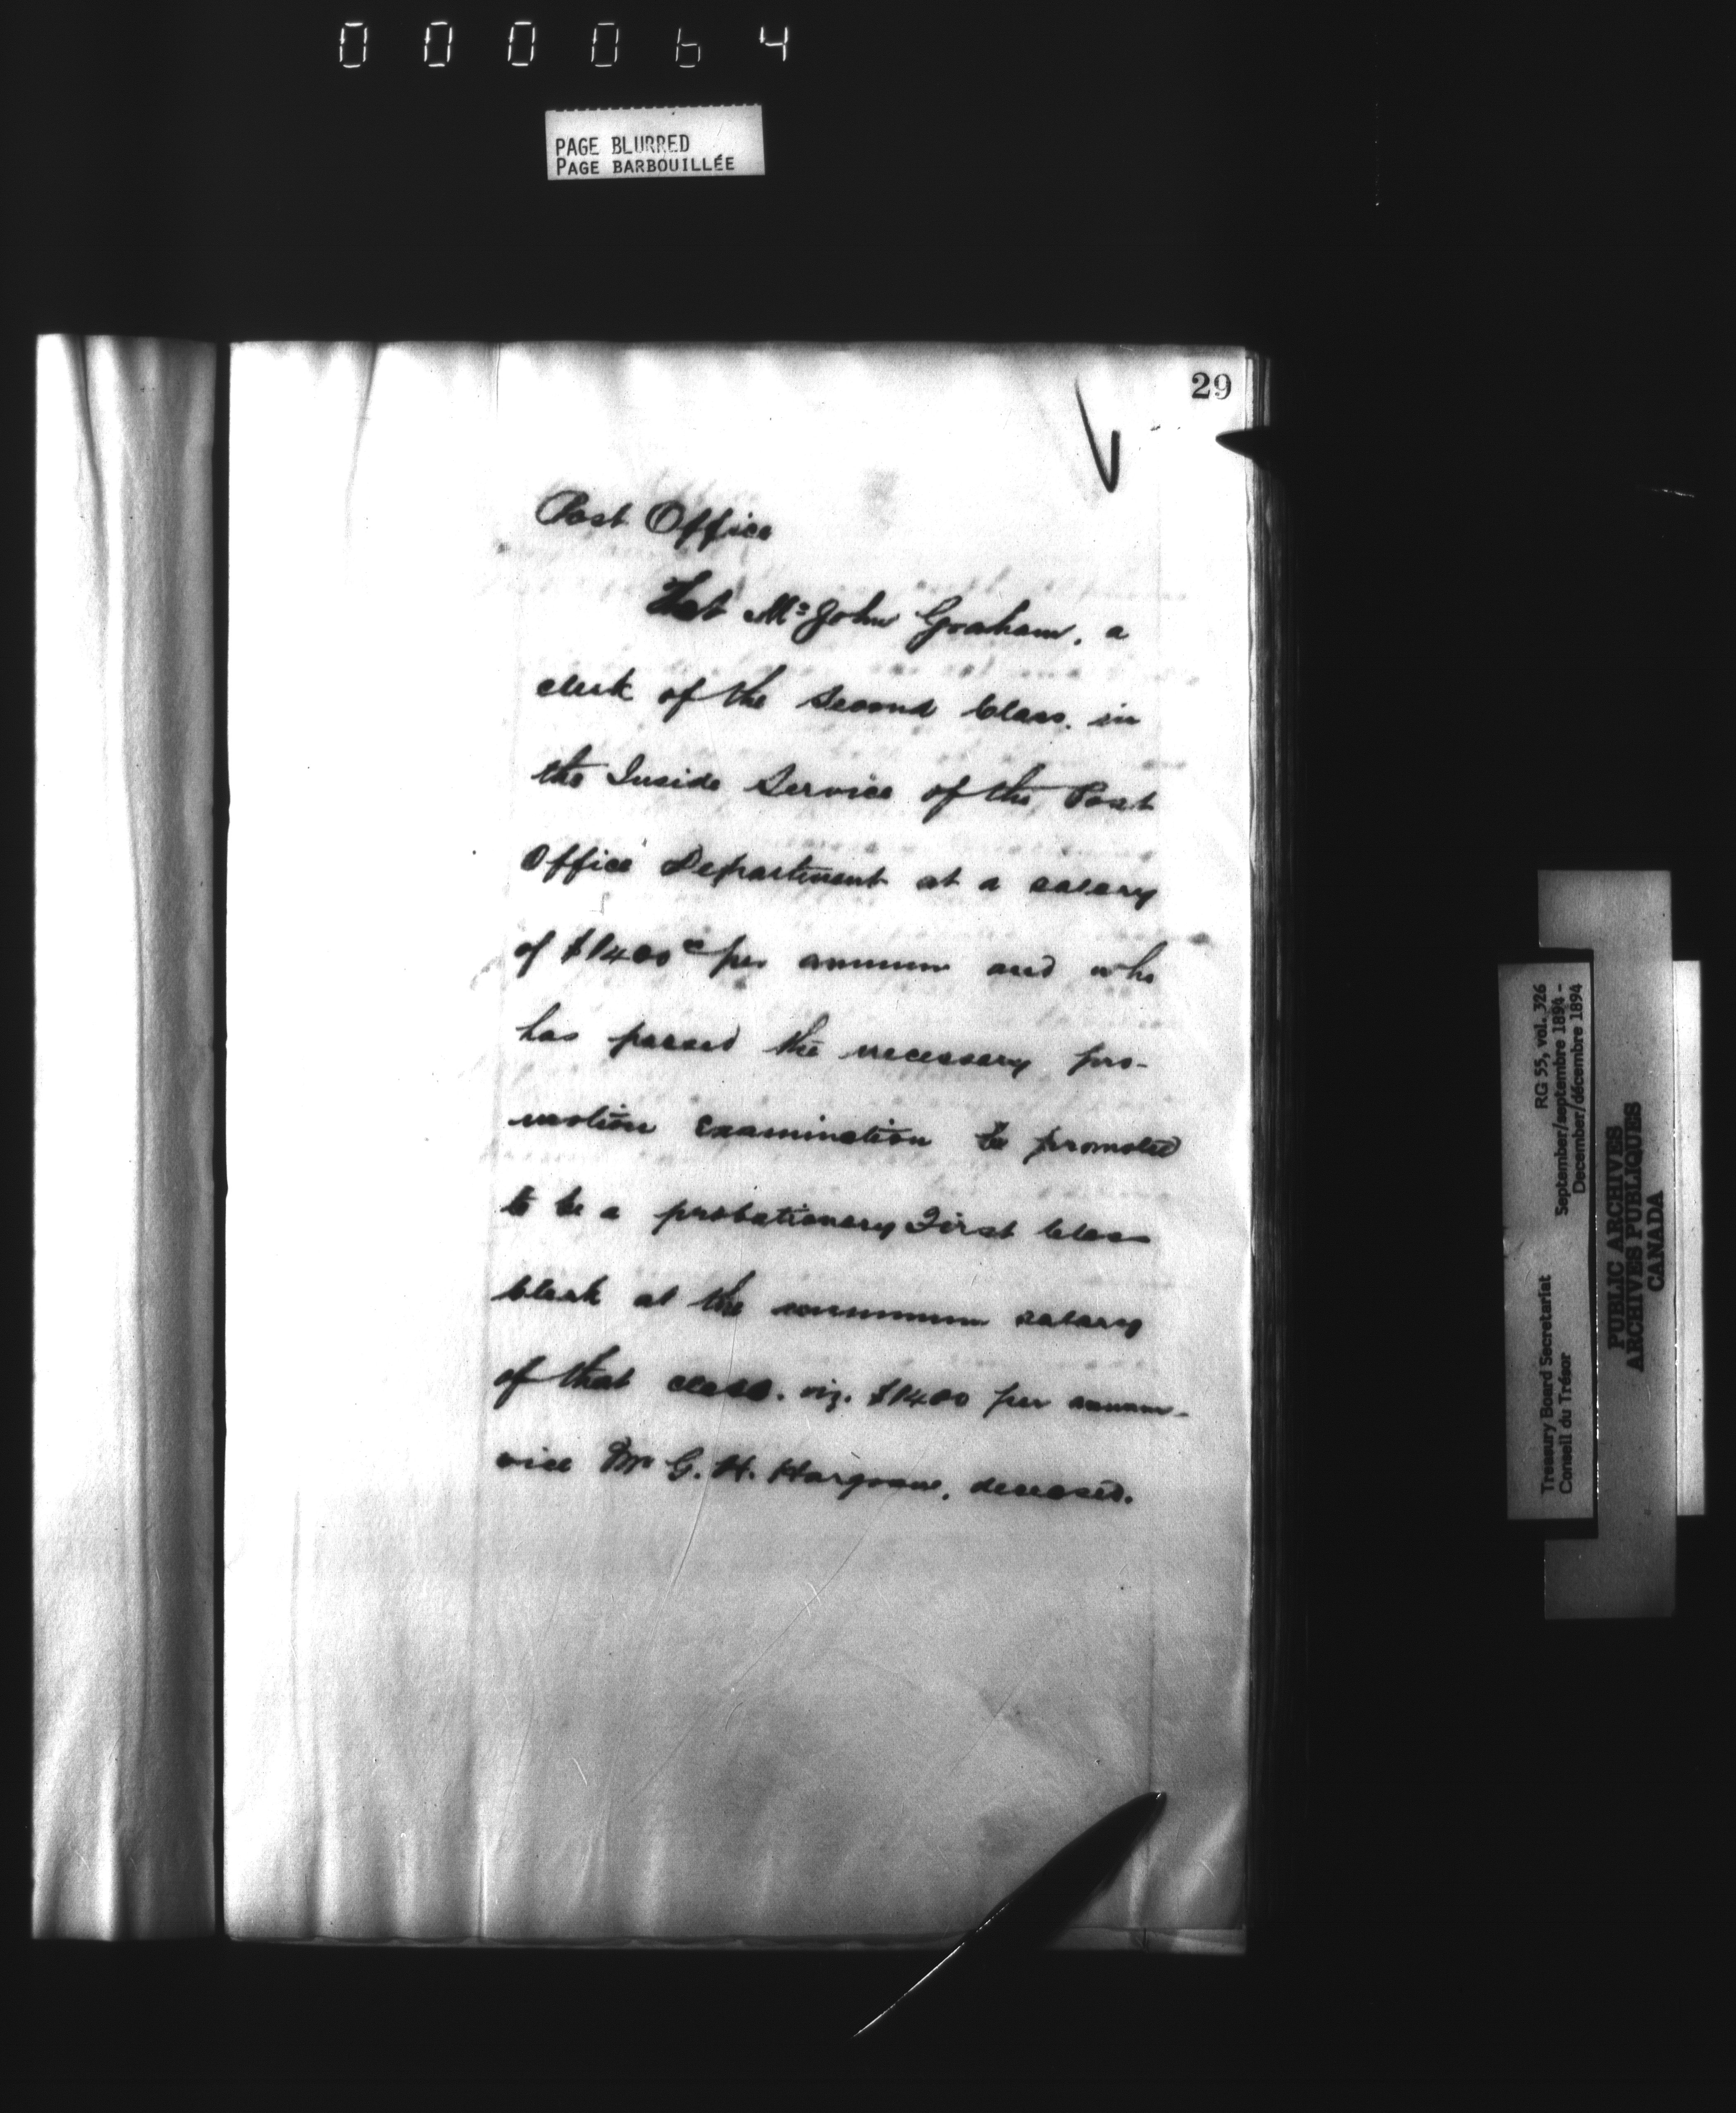 000064
PAGE BLURRED
PAGE BARBOUILLÉE
29
Post Office
That Mr John Graham, a
clerk of the Second Class, in
the Inside Service of the Post
Office Department at a salary
of $1400 00 per annum and who
has passed the necessary pro-
motion examination be promoted
to be a probationary First Class
Clerk at the minimum salary
of that class. viz. $1400 per annum-
vice Mr G. H. Hargrave, deceased.
Treasury Board Secretariat RG 55, vol. 326
Conseil du Trésor September/septembre 1894 -
December/décembre 1894
PUBLIC ARCHIVES
ARCHIVES PUBLIQUES
CANADA